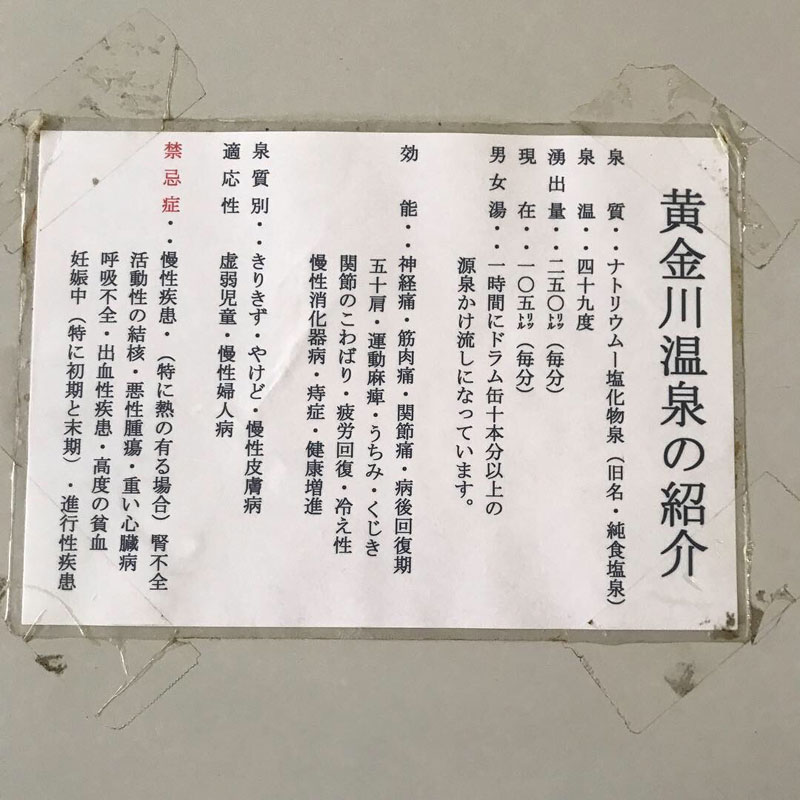 黄金川温泉の紹介
泉質・・ナトリウムー塩化物泉（旧名・純食塩泉）
泉温・・四十九度
湧出量・・二五〇㍑（毎分）
現在・・一〇五㍑（毎分）
男女湯・・一時間にドラム缶十本分以上の
源泉かけ流しになっています。
効能・・神経痛・筋肉痛・関節痛・病後回復期
五十肩・運動麻痺・うちみ・くじき
関節のこわばり・疲労回復・冷え性
慢性消化器病・痔症・健康増進
泉質別・・きりきず・やけど・慢性皮膚病
適応性　虚弱児童・慢性婦人病
禁忌症・・慢性疾患・（特に熱の有る場合）腎不全
活動性の結核・悪性腫瘍・重い心臓病
呼吸不全・出血性疾患・高度の貧血
妊娠中（特に初期と末期）・進行性疾患